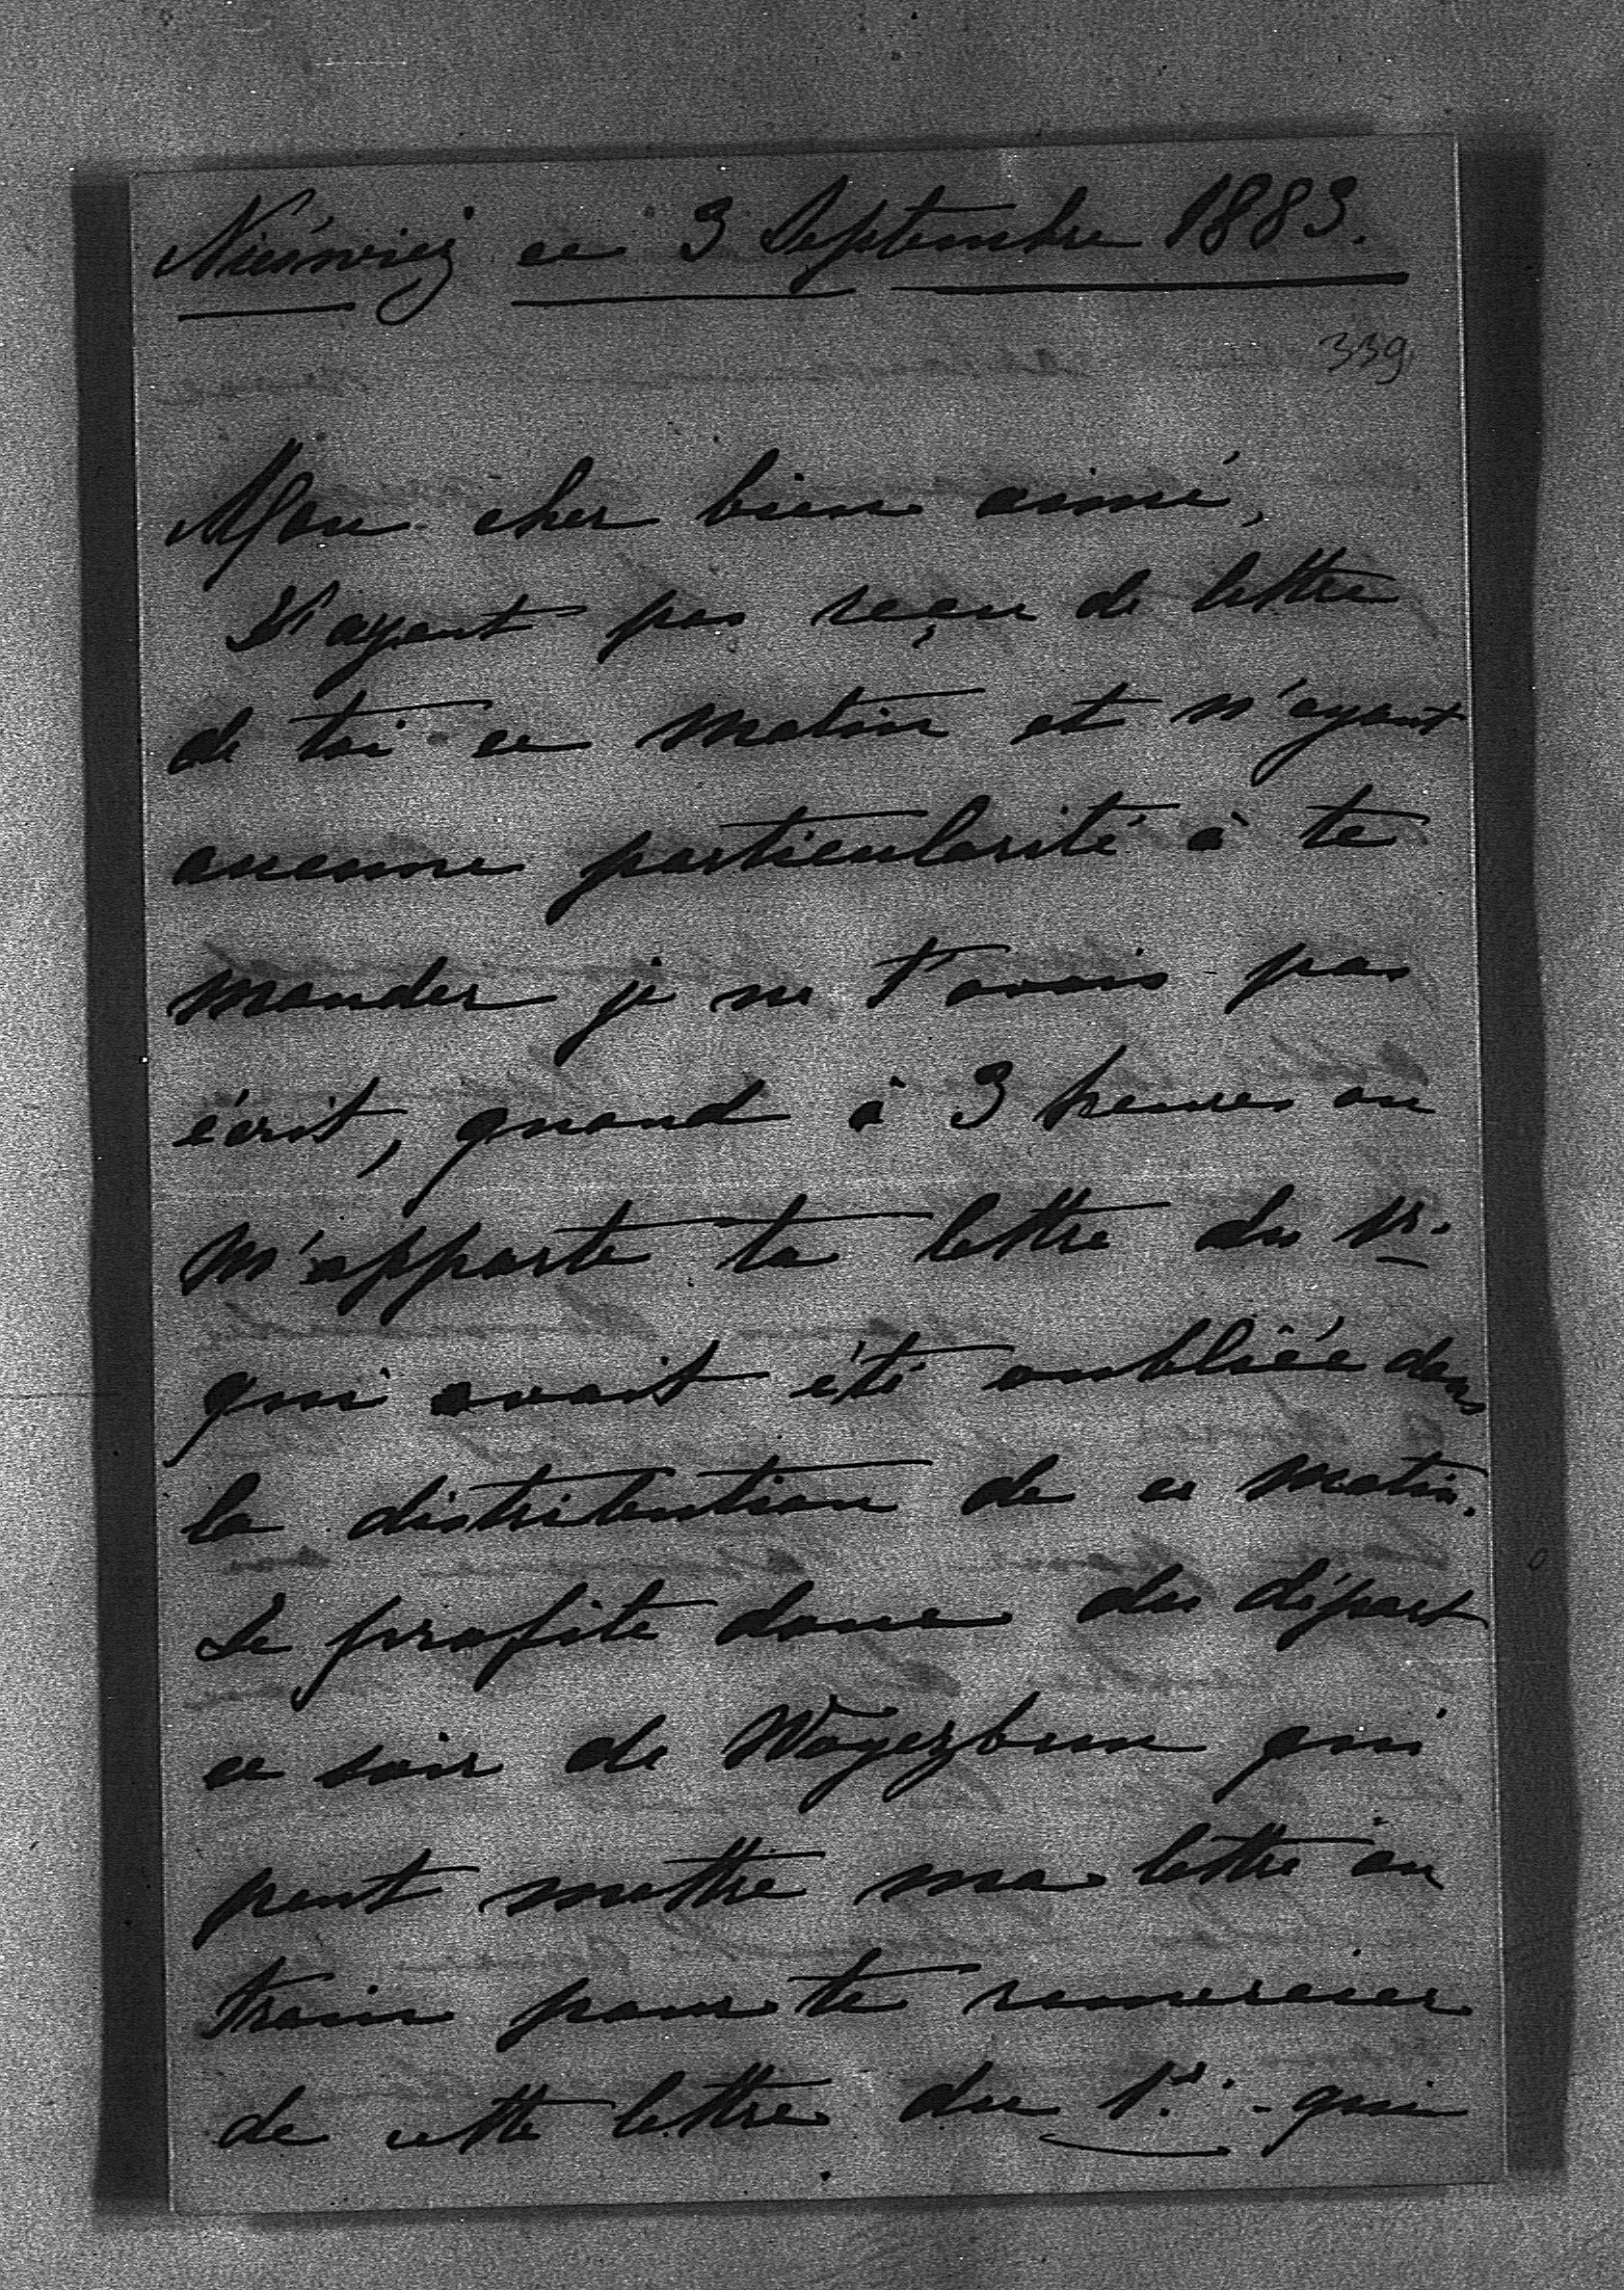 Nieśwież ce 3 Septembre 1883.
339
Mon cher bien aimé,
N'ayant pas reçu de lettre
de toi ce matin et n'ayant
aucune particularité à te
mander je ne t'avais pas
écrit, quand à 3 heures on
m'apporte ta lettre du 1r.
qui avait été oubliée dans
la distribution de ce matin.
Je profite donc du départ
ce soir de Woyezbun qui
peut mettre ma lettre au
train pour te remercier
de cette lettre du 1r. - qui